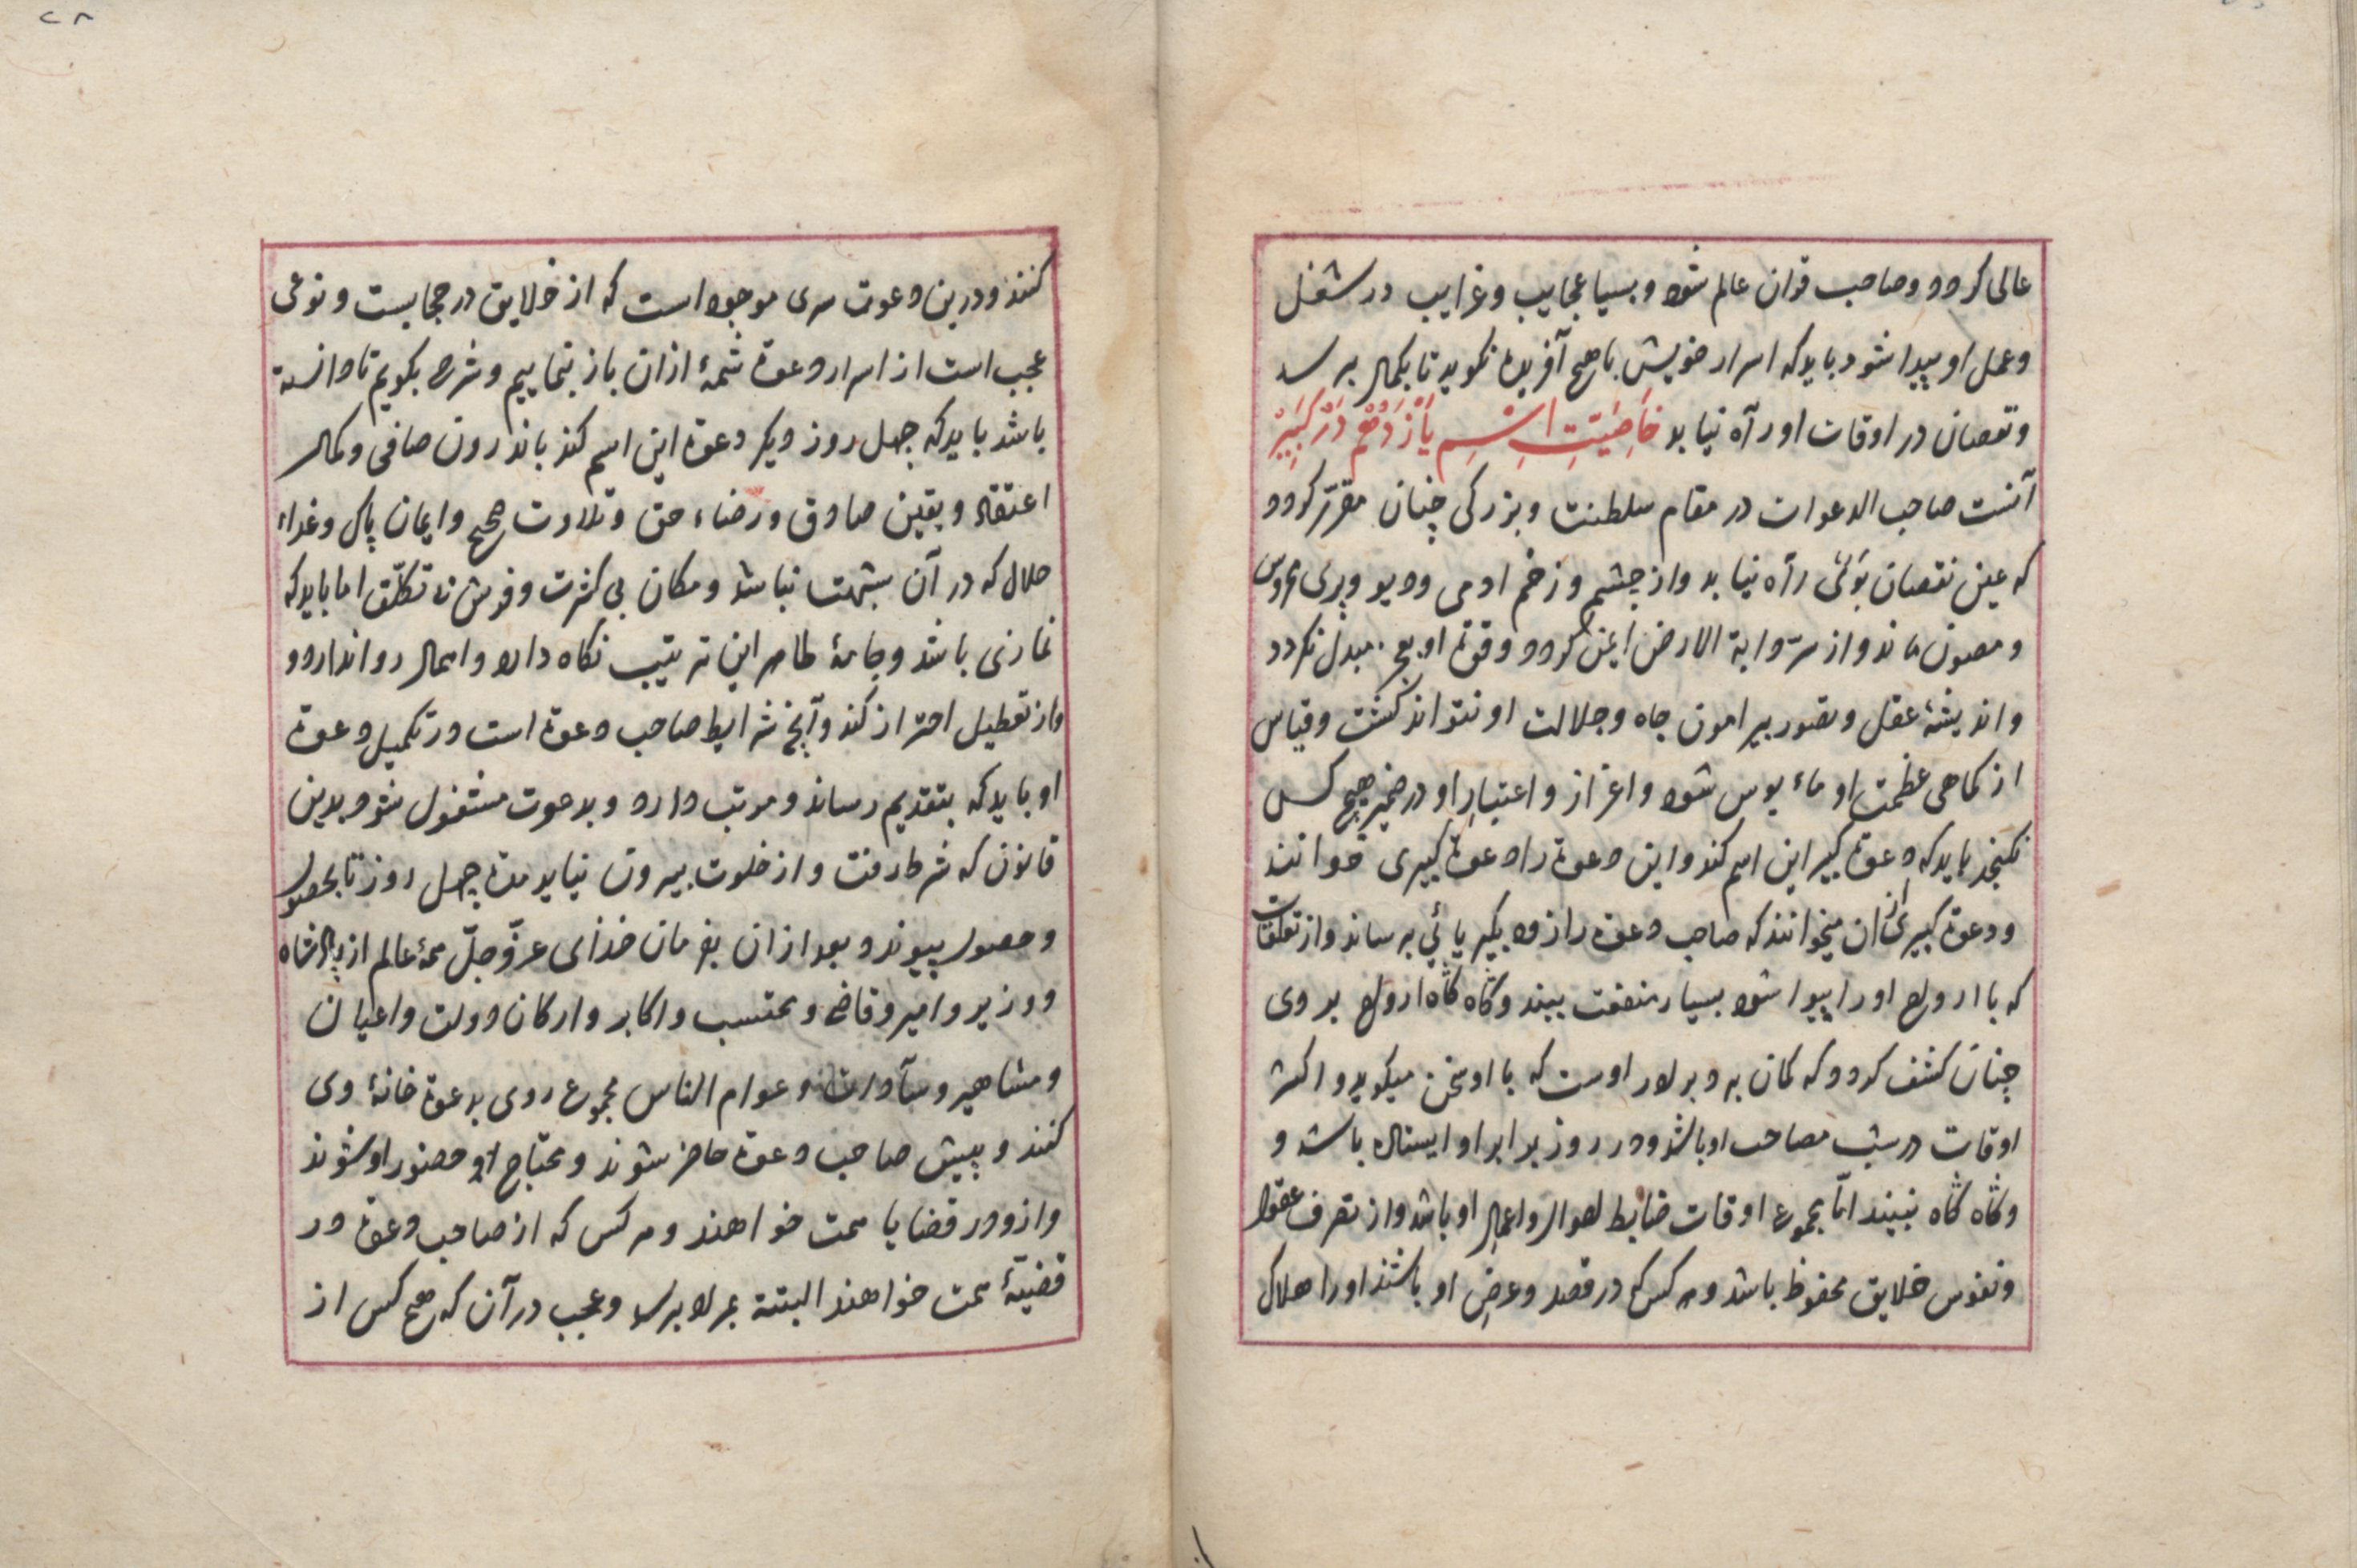 عالی کردد و صاحب قران عالم شود و بسیا عجایب و غرایب در شغل
و عمل او پیدا شود باید که اسرار خویش با هیچ آفریده نکوید تا بکمال برسد
و نقصان در اوقات او رآه نیابد خَاصِیَتِ اسْمِ یَازْدَهُم دَرْ کَبِیْرِ
آنست صاحب الدعوات در مقام سلطنت و بزرکی چنان مقرّر کردد
که عین نقصان بَوَئی رآه نیابد و از چشم و زخم ادمی و دیو و پری محروس
و مصون ماند و از سرّ دابة الارض ایمن کردد و قوة او بعجز مبدل نکردد
و اندیشهٔ عقل و تصور پیرامون جاه و جلالت او نتواند کشت و قیاس
از کماهی عظمت او مأیوس شود و اعزاز و اعتبارِ او در ضمیر هیچ کس
نکنجد باید که دعوة کبیر این اسم کند و این دعوة را دعوة کبیری خوانند
و دعوة کبیری از ان میخوانند که صاحب دعوة را زود بکبریائی برساند و از تعلقات
که با ارواح او را پیدا شود بسیار منفعت بیند و کاه کاه ارواح بر وی
چنان کشف کردد که کمان برد برادر اوست که با او سخن میکوید و اکثر
اوقات در شب مصاحب او باشد و در روز برابر او ایستاده باشد و
و کاه کاه نبیند امّا بمجموع اوقات ضابط احوال و اعمالِ او باشد و از تصرف عقول
و نفوس خلایق محفوظ باشد و هر کس که در قصد و عرضِ او باشند او را هلاک
کنند و درین دعوت سری موجود است که از خلایق در حجابست و نوعی
عجب است از اسرار دعوة شمهٔ از ان باز نماییم و شرح بکویم تا دانسته
باشد باید که چهل روز دیکر دعوة این اسم کند باندرون صافی و کمال
اعتقاد و یقین صادق و رضاء حق و تلاوت صحیح و ایمان پاک و غداء
حلال که در آن شبهت نباشد و مکان بی کثرت و فرش نه تکلّف اما باید که
نمازی باشد و جامهٔ طاهر این ترتیب نکاه دارد و اهمال روا ندارد
و از تعطیل احتراز کند و آنچ شرایط صاحب دعوة است در تکمیل دعوة
او باید که بتقدیم رساند و مرتب دارد و بدعوت مشغول شود بدین
قانون که شرط رفت و از خلوت بیرون نیاید مدة چهل روز تا بحصول
و حصول پیوند و بعد از ان بفرمان خدٰای عزّ و جلّ همهٔ عالم از پادشاه
و وزیر و امیر و قاضی و محتسب و اکابر و ارکان دولت و اعیان
و مشاهیر و سآدات و عوام الناس مجموع روی بدعوة خانهٔ وی
کنند و پیش صاحب دعوة حاضر شوند و محتاج او حضور او شوند
و از و در قضایا همت خواهند و هر کس که از صاحب دعوة در
قضیّهٔ همت خواهند البتة بمراد برسد و عجب در آن که هیچ کس از